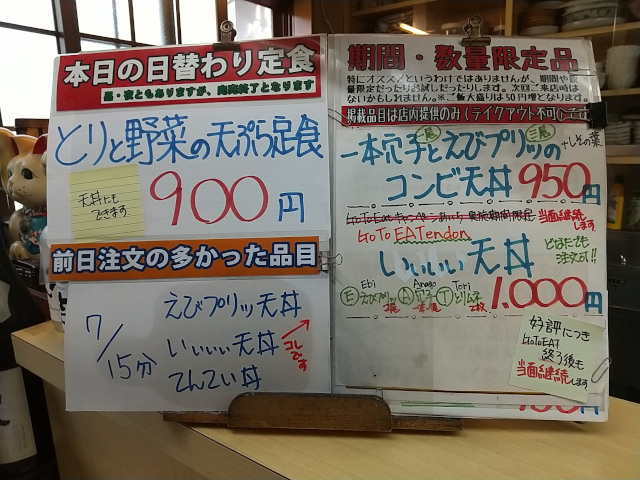 本日の日替わり定食
昼・夜ともありますが、完売終了となります
とりと野菜の天ぷら定食
天丼にも
できます。
900円
前日注文の多かった品目
7/15分
えびプリッ天丼
いいいい天丼
てんてい丼
コレです
期間・数量限定品
特にオススメというわけではありませんが、期間や数
量限定だったりお試しだったりします。次回ご来店時は
ないかもしれません。※ご飯大盛りは50円増となります。
掲載品目は店内提供のみ(テイクアウト不可
一本穴子とえびプリッの
+しその葉
コンビ天丼 950円
当面継続します
GoTo EATendon
いいいい天丼
どなたでも
注文可!!
Ebi Anago Tori
Ⓔえびプリッ Ⓐ穴子 Ⓣとりムネ
2尾 2枚
1.000円
好評につき
GoToEAT
終了後も
当面継続します